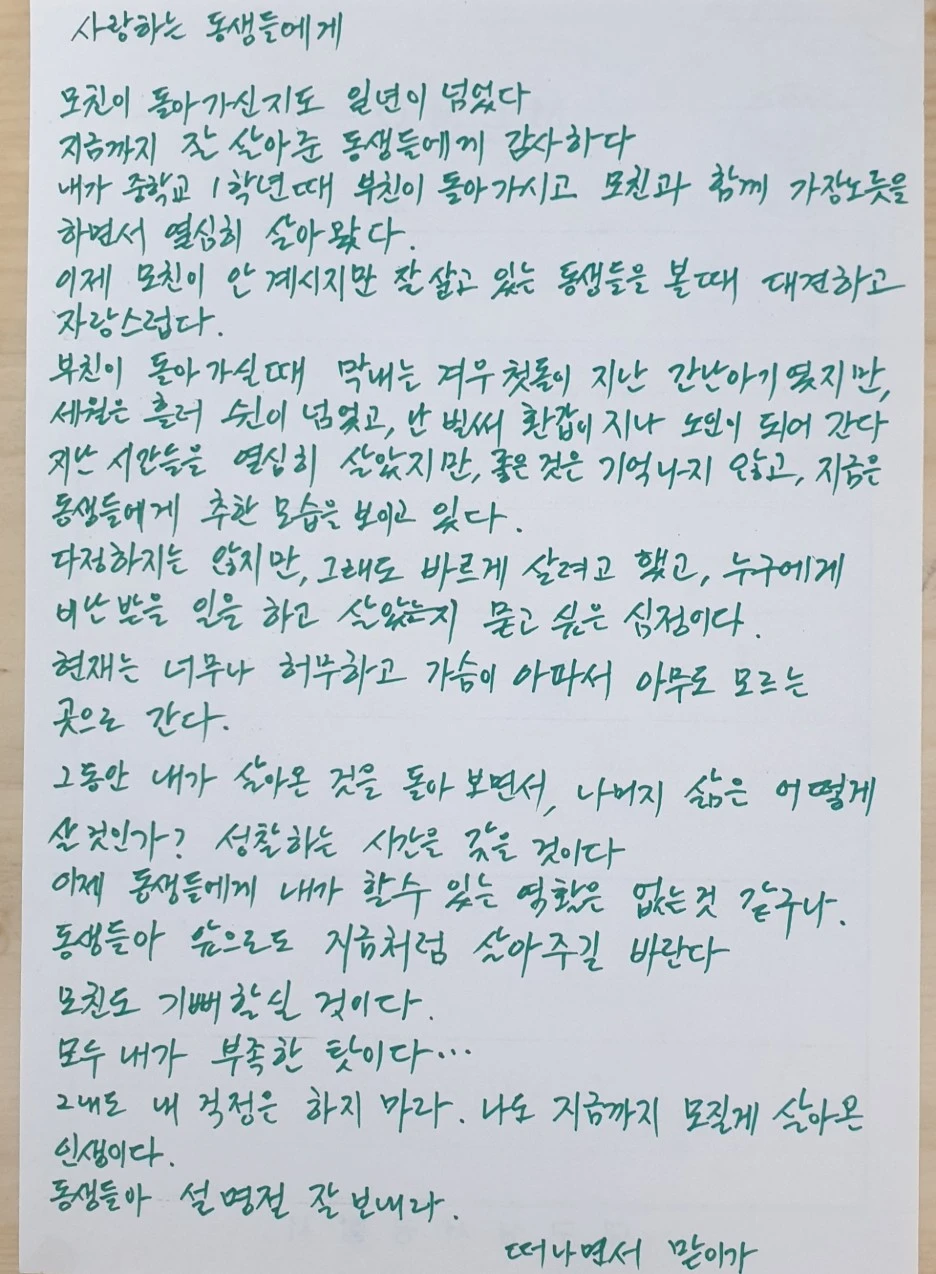 사랑하는 동생들에게
모친이 돌아가신지도 일년이 넘었다
지금까지 잘 살아준 동생들에게 감사하다
내가 중학교 1학년때 부친이 돌아가시고 모친과 함께 가장노릇을
하면서 열심히 살아왔다.
이제 모친이 안 계시지만 잘 살고 있는 동생들을 볼때 대견하고
자랑스럽다.
부친이 돌아가실때 막내는 겨우 첫돌이 지난 간난아기였지만,
세월은 흘러 쉰이 넘었고, 난 벌써 환갑이 지나 노인이 되어 간다
지난 시간들을 열심히 살았지만, 좋은 것은 기억나지 않고, 지금은
동생들에게 추한 모습을 보이고 있다.
다정하지는 않지만, 그래도 바르게 살려고 했고, 누구에게
비난 받을 일을 하고 살았는지 묻고 싶은 심정이다.
현재는 너무나 허무하고 가슴이 아파서 아무도 모르는
곳으로 간다.
그동안 내가 살아온 것을 돌아 보면서, 나머지 삶은 어떻게
살것인가? 성찰하는 시간을 갖을 것이다
이제 동생들에게 내가 할수 있는 역활은 없는것 같구나.
동생들아 앞으로도 지금처럼 살아주길 바란다
모친도 기뻐할실 것이다.
모두 내가 부족한 탓이다...
그래도 내 걱정은 하지 마라. 나도 지금까지 모질게 살아온
인생이다.
동생들아 설 명절 잘 보내라.
떠나면서 맏이가